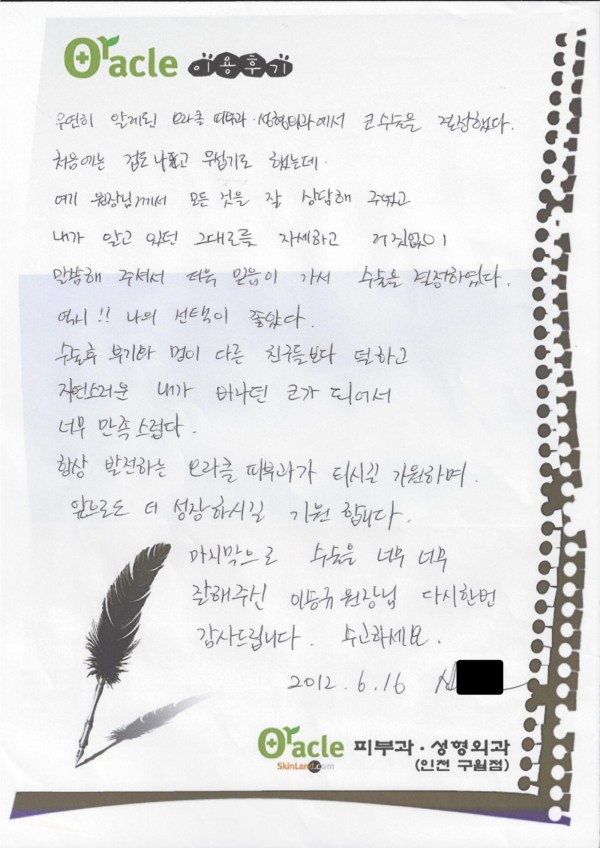 Oracle 이용후기
우연히 알게된 오라클 피부과·성형외과에서 코수술을 결정했다.
처음에는 겁도 나고 무섭기도 했는데.
여기 원장님께서 모든 것을 잘 상담해 주셨고
내가 알고 있던 그대로를 자세하고 거짓없이
말씀해 주셔서 더욱 믿음이 가서 수술을 결정하였다.
역시!! 나의 선택이 좋았다.
수술후 붓기나 멍이 다른 친구들보다 덜하고
자연스러운 내가 바라던 코가 되어서
너무 만족스럽다.
항상 발전하는 오라클 피부과가 되시길 기원하며.
앞으로도 더 성장하시길 기원 합니다.
마지막으로 수술을 너무 너무
잘해주신 원장님 다시한번
감사드립니다. 수고하세요.
2012. 6. 16
Oracle 피부과·성형외과
SkinLand.com (인천 구월점)